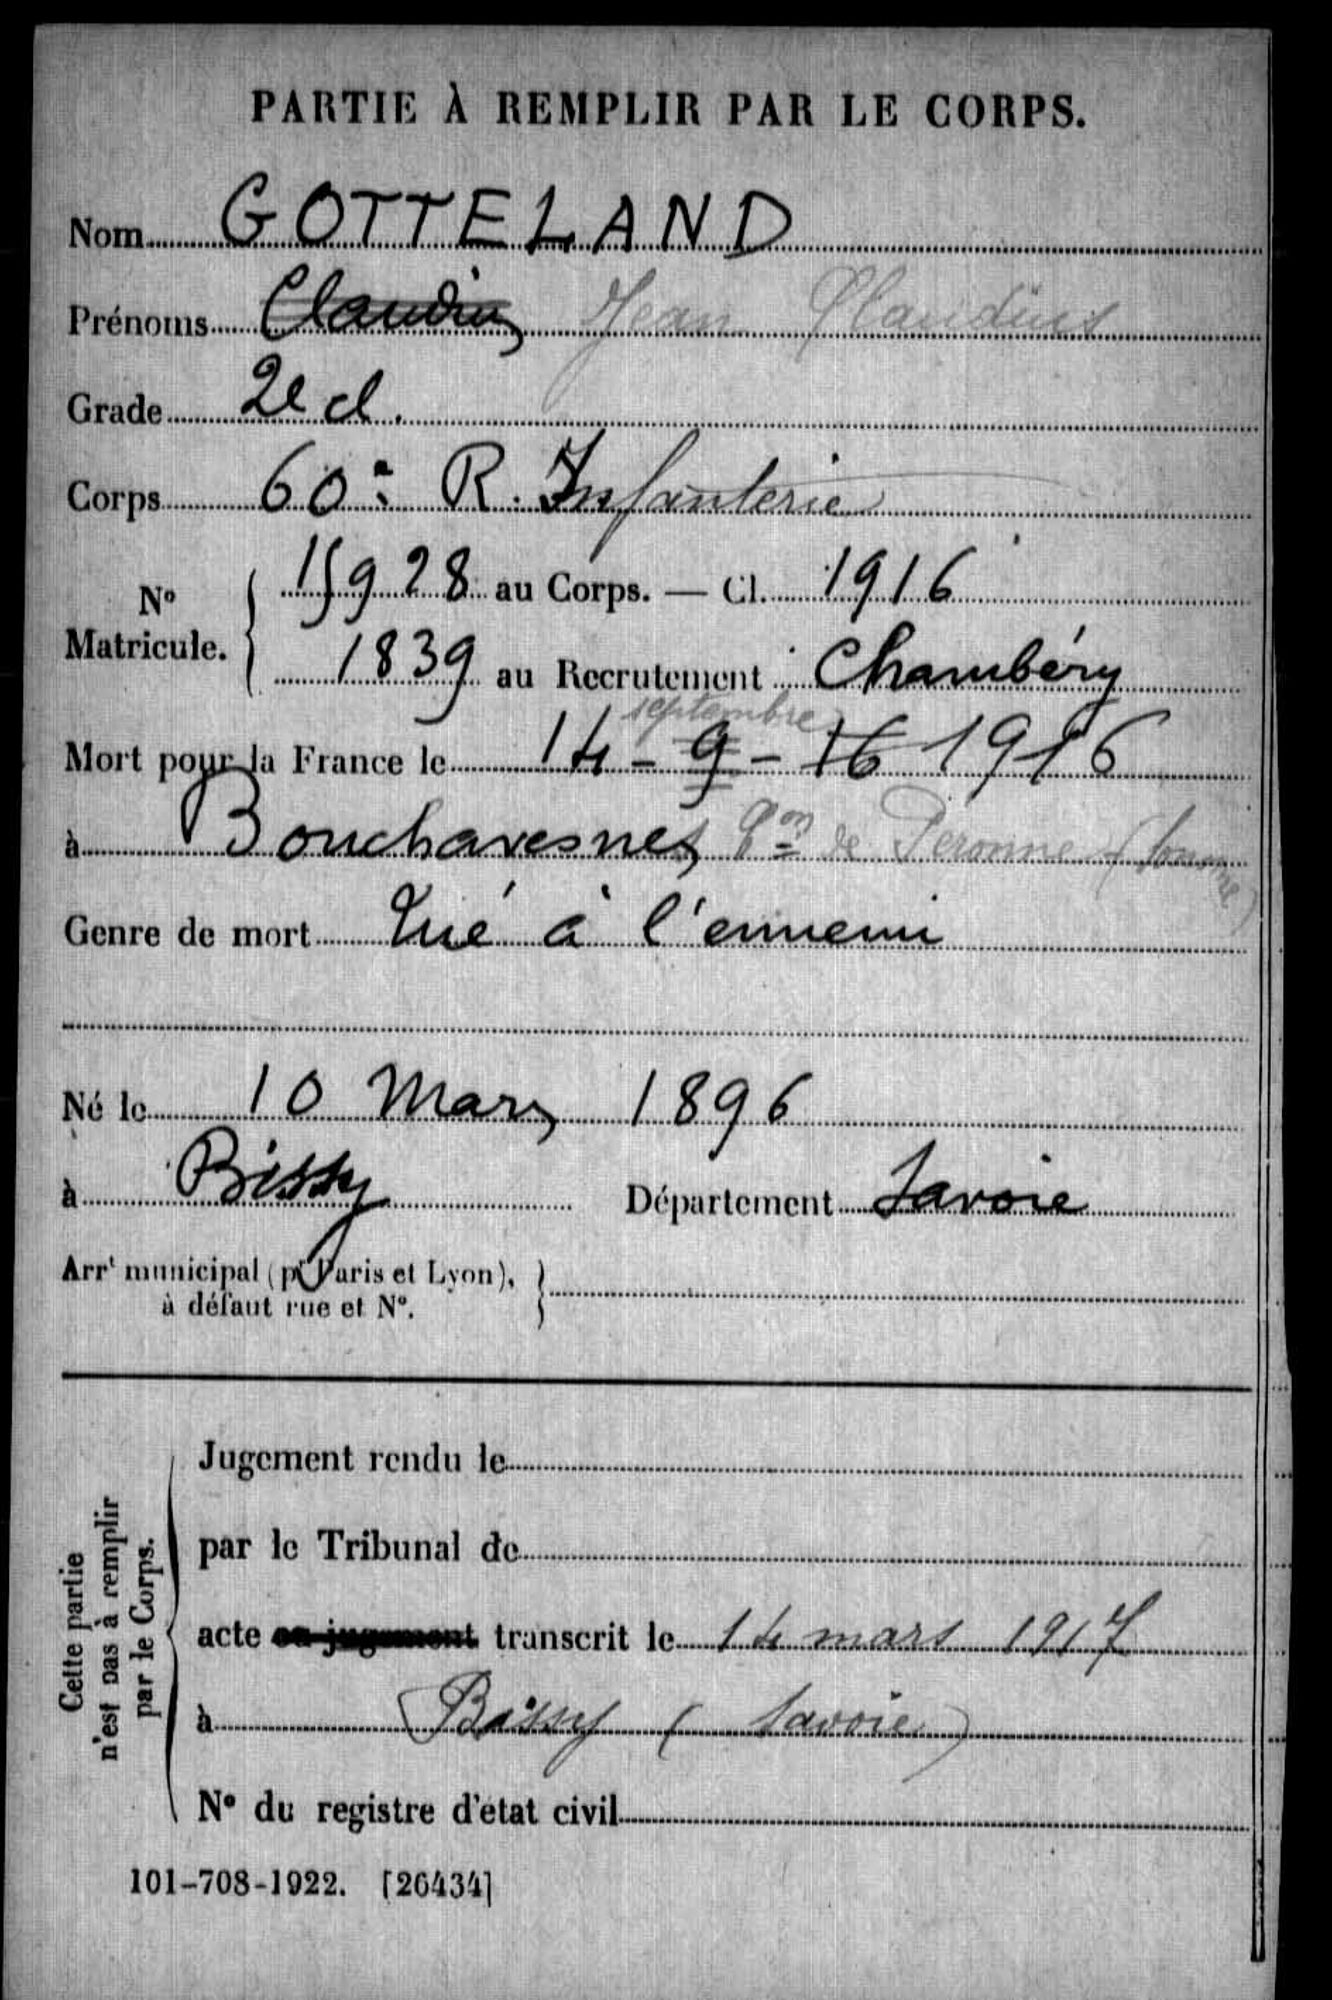 PARTIE À REMPLIR PAR LE CORPS.
Nom GOTTELAND
Prénoms Claudius Jean Claudius
Grade 2e cl.
Corps 60e R. Infanterie
N° Matricule. 15928 au Corps. — Cl. 1916
1839 au Recrutement Chambéry
septembre
Mort pour la France le 14 - 9 - 16 1916
à Bouchavesnes de Peronne (Somme)
Genre de mort Tué à l'ennemi
Né le 10 Mars 1896
à Bissy Département Savoie
Arrt municipal (pr Paris et Lyon),
à défaut rue et N°.
Cette partie
n'est pas à remplir
par le Corps.
Jugement rendu le
par le Tribunal de
acte ou jugement transcrit le 14 mars 1917
à Bissy (Savoie)
N° du registre d'état civil
101-708-1922. [26434]